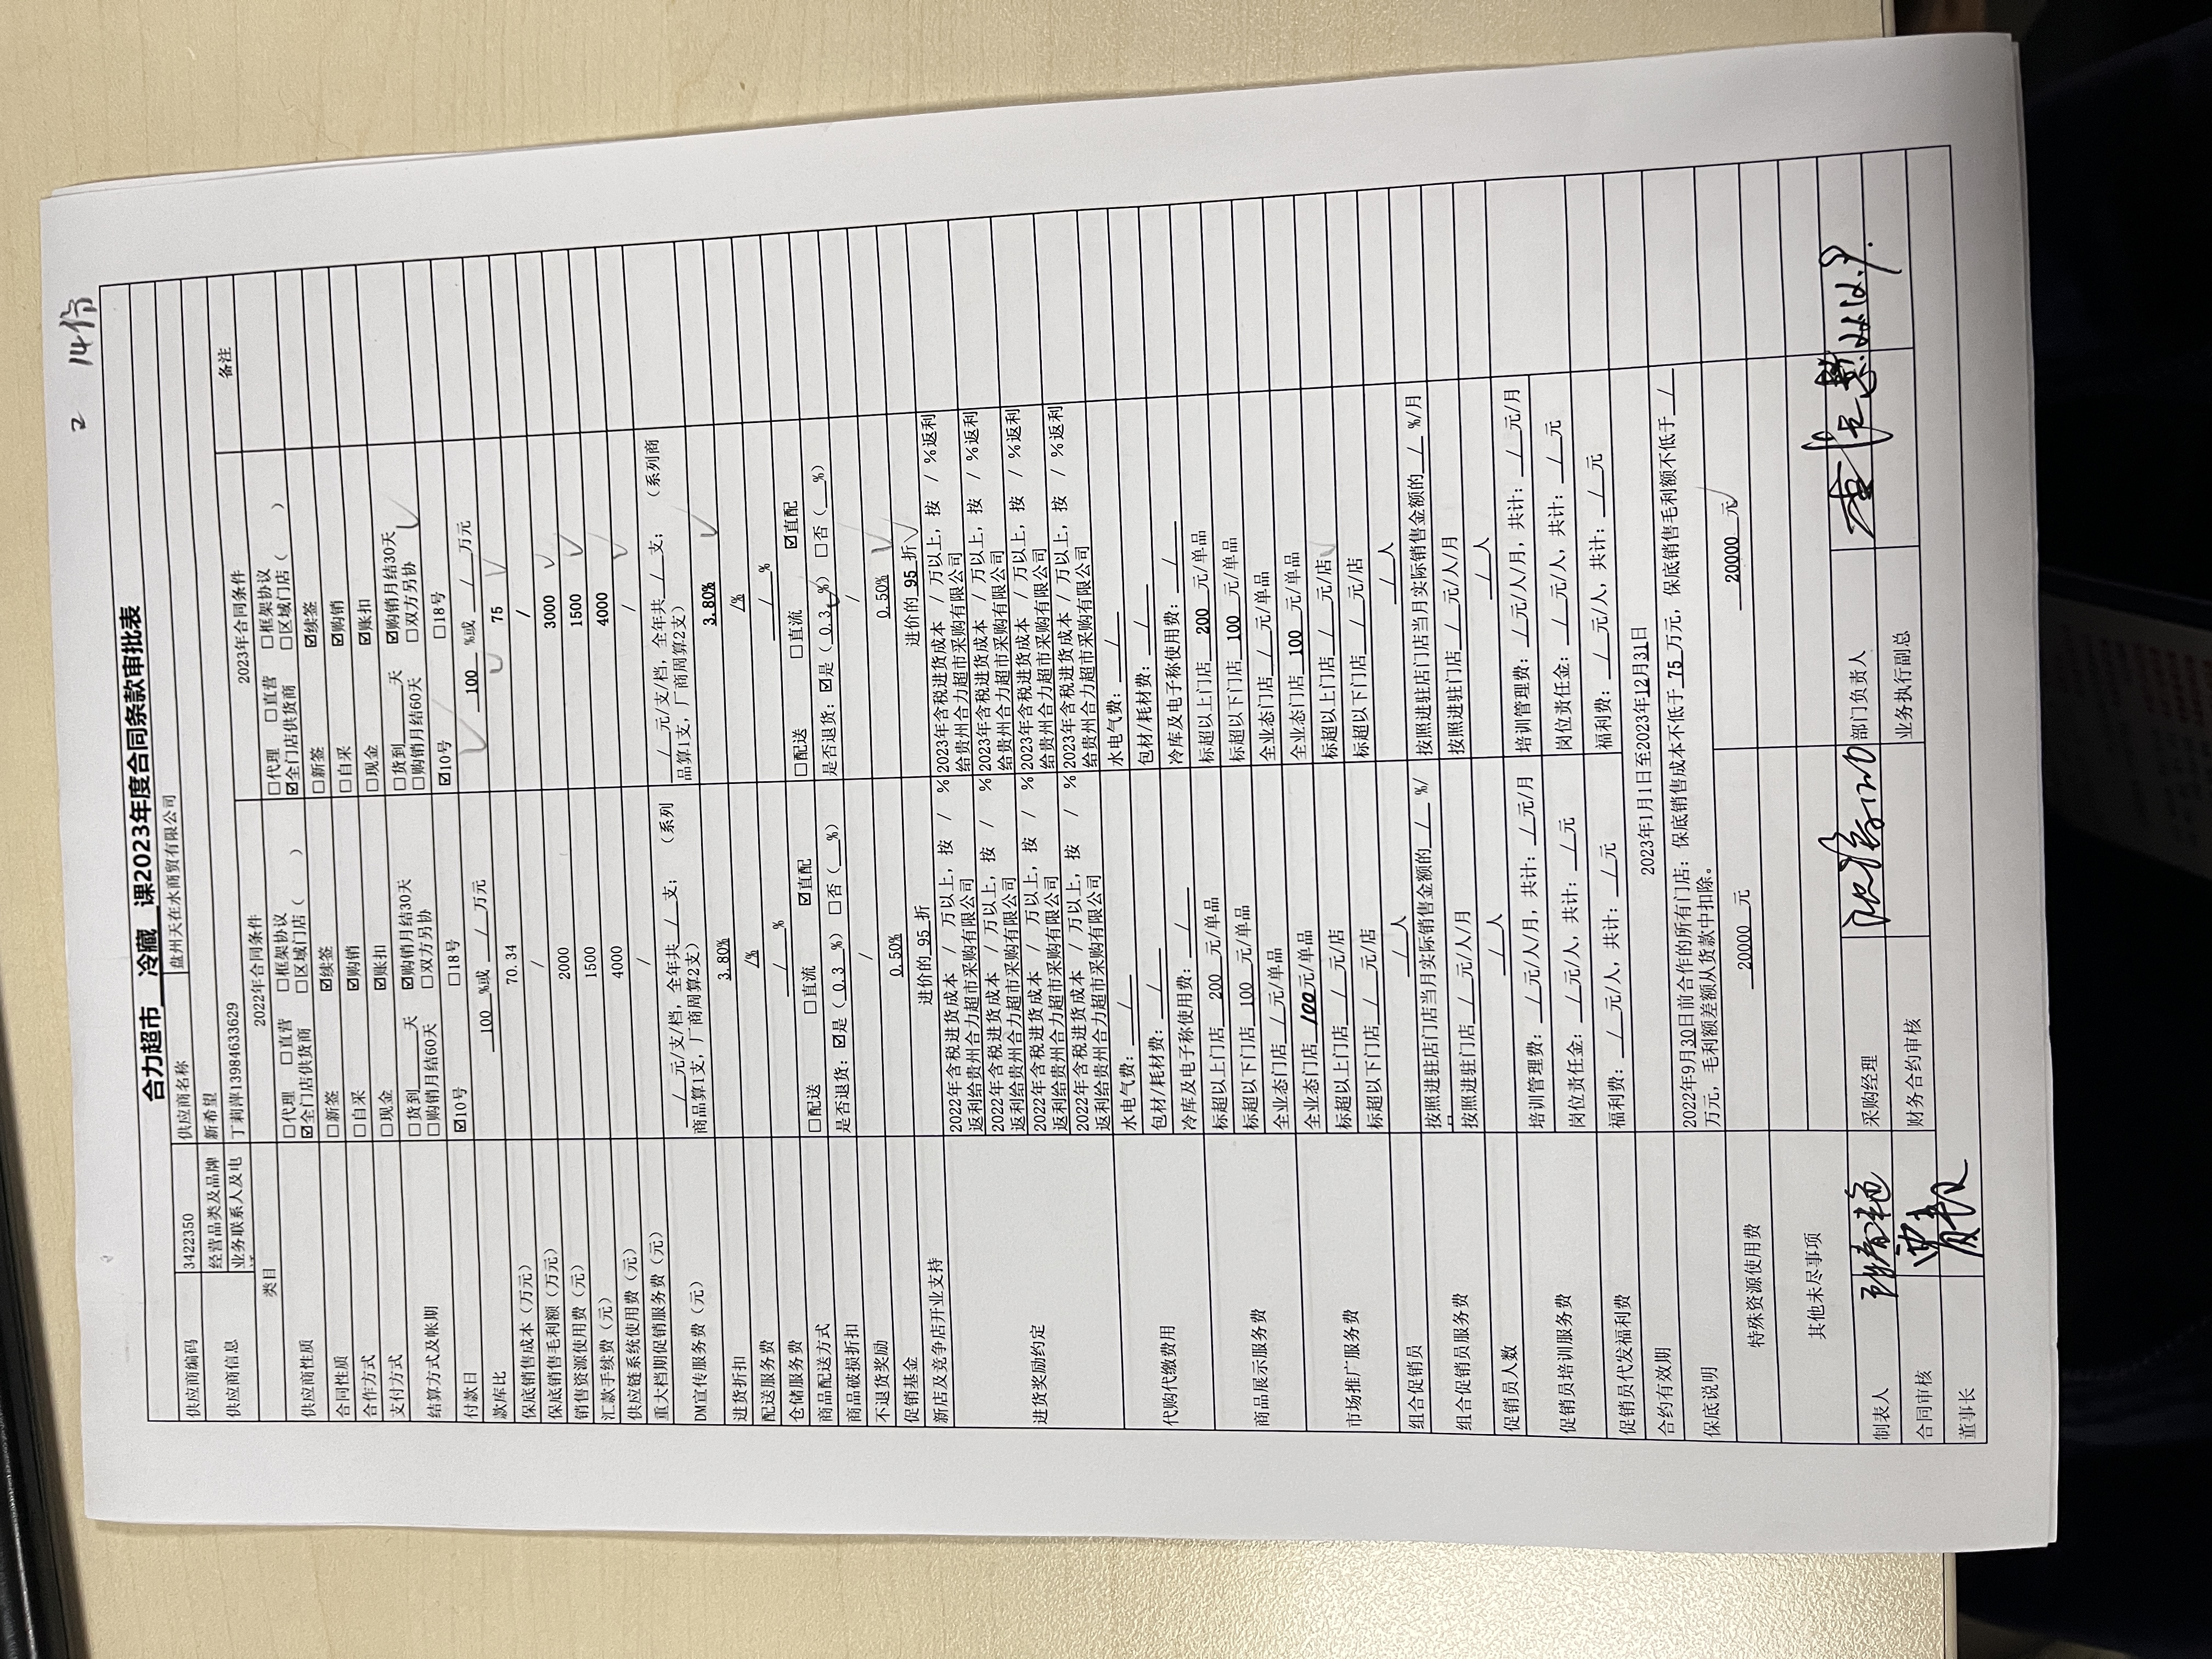 2 14份
合力超市 冷藏 课2023年度合同条款审批表
供应商编码 3422350 供应商名称 盘州天在水商贸有限公司
供应商信息 经营品类及品牌 新希望
业务联系人及电 丁莉萍13984633629
类目 2022年合同条件 2023年合同条件 备注
供应商性质 □代理 □直营 □框架协议 □代理 □直营 □框架协议
☑全门店供货商 □区域门店（ ） ☑全门店供货商 □区域门店（ ）
合同性质 □新签 ☑续签 □新签 ☑续签
合作方式 □自采 ☑购销 □自采 ☑购销
支付方式 □现金 ☑账扣 □现金 ☑账扣
结算方式及帐期 □货到___天 ☑购销月结30天 □货到___天 ☑购销月结30天
□购销月结60天 □双方另协 □购销月结60天 □双方另协
付款日 ☑10号 □18号 ☑10号 □18号
款库比 100 %或 / 万元 100 %或 / 万元
保底销售成本（万元） 70.34 75
保底销售毛利额（万元） / /
销售资源使用费（元） 2000 3000
汇款手续费（元） 1500 1500
供应链系统使用费（元） 4000 4000
重大档期促销服务费（元） / /
DM宣传服务费（元） / 元/支/档，全年共 / 支； （系列 / 元/支/档，全年共 / 支； （系列商
商品算1支，厂商周算2支） 品算1支，厂商周算2支）
进货折扣 3.80% 3.80%
配送服务费 /% /%
仓储服务费 / % / %
商品配送方式 □配送 □直流 ☑直配 □配送 □直流 ☑直配
商品破损折扣 是否退货：☑是（ 0.3 %） □否（ %） 是否退货：☑是（ 0.3 %） □否（ %）
不退货奖励 / /
促销基金 0.50% 0.50%
新店及竞争店开业支持 进价的 95 折 进价的 95 折
进货奖励约定 2022年含税进货成本 / 万以上，按 / % 2023年含税进货成本 / 万以上，按 / %返利
返利给贵州合力超市采购有限公司 给贵州合力超市采购有限公司
2022年含税进货成本 / 万以上，按 / % 2023年含税进货成本 / 万以上，按 / %返利
返利给贵州合力超市采购有限公司 给贵州合力超市采购有限公司
2022年含税进货成本 / 万以上，按 / % 2023年含税进货成本 / 万以上，按 / %返利
返利给贵州合力超市采购有限公司 给贵州合力超市采购有限公司
2022年含税进货成本 / 万以上，按 / % 2023年含税进货成本 / 万以上，按 / %返利
返利给贵州合力超市采购有限公司 给贵州合力超市采购有限公司
代购代缴费用 水电气费： / 水电气费： /
包材/耗材费： / 包材/耗材费： /
冷库及电子称使用费： / 冷库及电子称使用费： /
商品展示服务费 标超以上门店 200 元/单品 标超以上门店 200 元/单品
标超以下门店 100 元/单品 标超以下门店 100 元/单品
全业态门店 / 元/单品 全业态门店 / 元/单品
市场推广服务费 全业态门店 100元/单品 全业态门店 100 元/单品
标超以上门店 / 元/店 标超以上门店 / 元/店
标超以下门店 / 元/店 标超以下门店 / 元/店
组合促销员 / 人 / 人
组合促销员服务费 按照进驻店门店当月实际销售金额的 / %/ 按照进驻店门店当月实际销售金额的 / %/月
按照进驻门店 / 元/人/月 按照进驻门店 / 元/人/月
促销员人数 / 人 / 人
促销员培训服务费 培训管理费： / 元/人/月，共计： / 元/月 培训管理费： / 元/人/月，共计： / 元/月
岗位责任金： / 元/人，共计： / 元 岗位责任金： / 元/人，共计： / 元
促销员代发福利费 福利费： / 元/人，共计： / 元 福利费： / 元/人，共计： / 元
合约有效期 2023年1月1日至2023年12月31日
保底说明 2022年9月30日前合作的所有门店：保底销售成本不低于 75 万元，保底销售毛利额不低于 /
万元，毛利额差额从货款中扣除。
特殊资源使用费 20000 元 20000 元
其他未尽事项
制表人 采购经理 部门负责人
合同审核 财务合约审核 业务执行副总
董事长